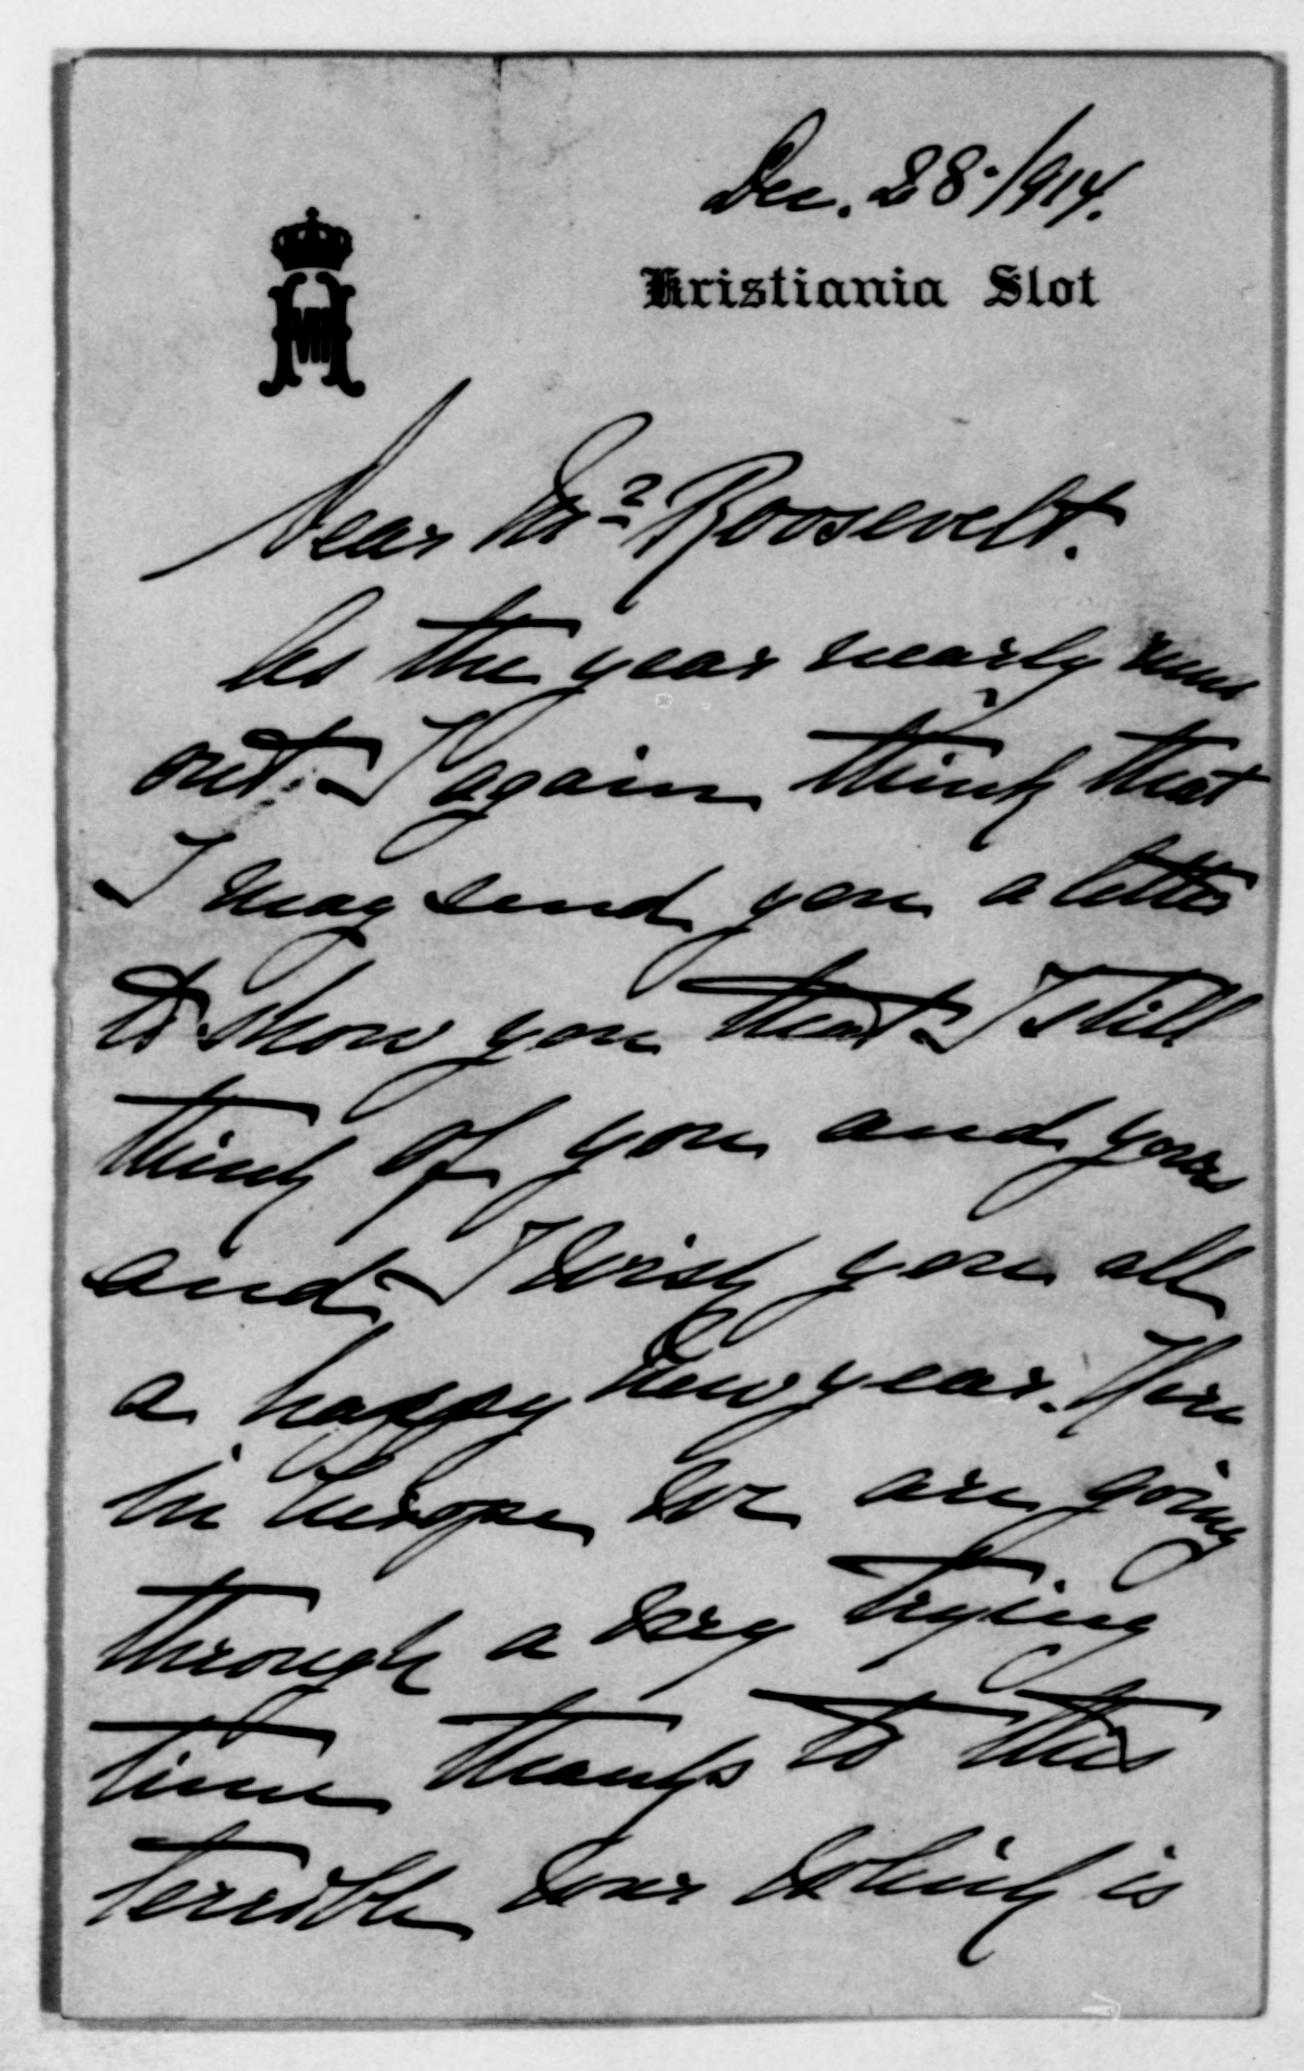 Dec. 28./1914.
Kristiania Slot
H VII
Dear Mr Roosevelt.
As the year nearly runs
out I again think that
I may send you a letter
to show you that I still
think of you and yours
and I wish you all
a happy New year. Here
in Europe we are going
through a very trying
time thanks to this
terrible war which is